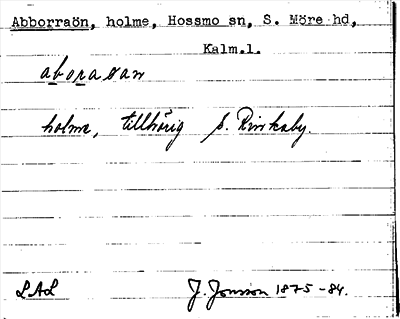 Abborraön, holme, Hossmo sn, S. Möre hd,
Kalm.l.
aboraöan
holme, tillhörig S. Binkaby.
LAL J. Jonsson 1875-84.